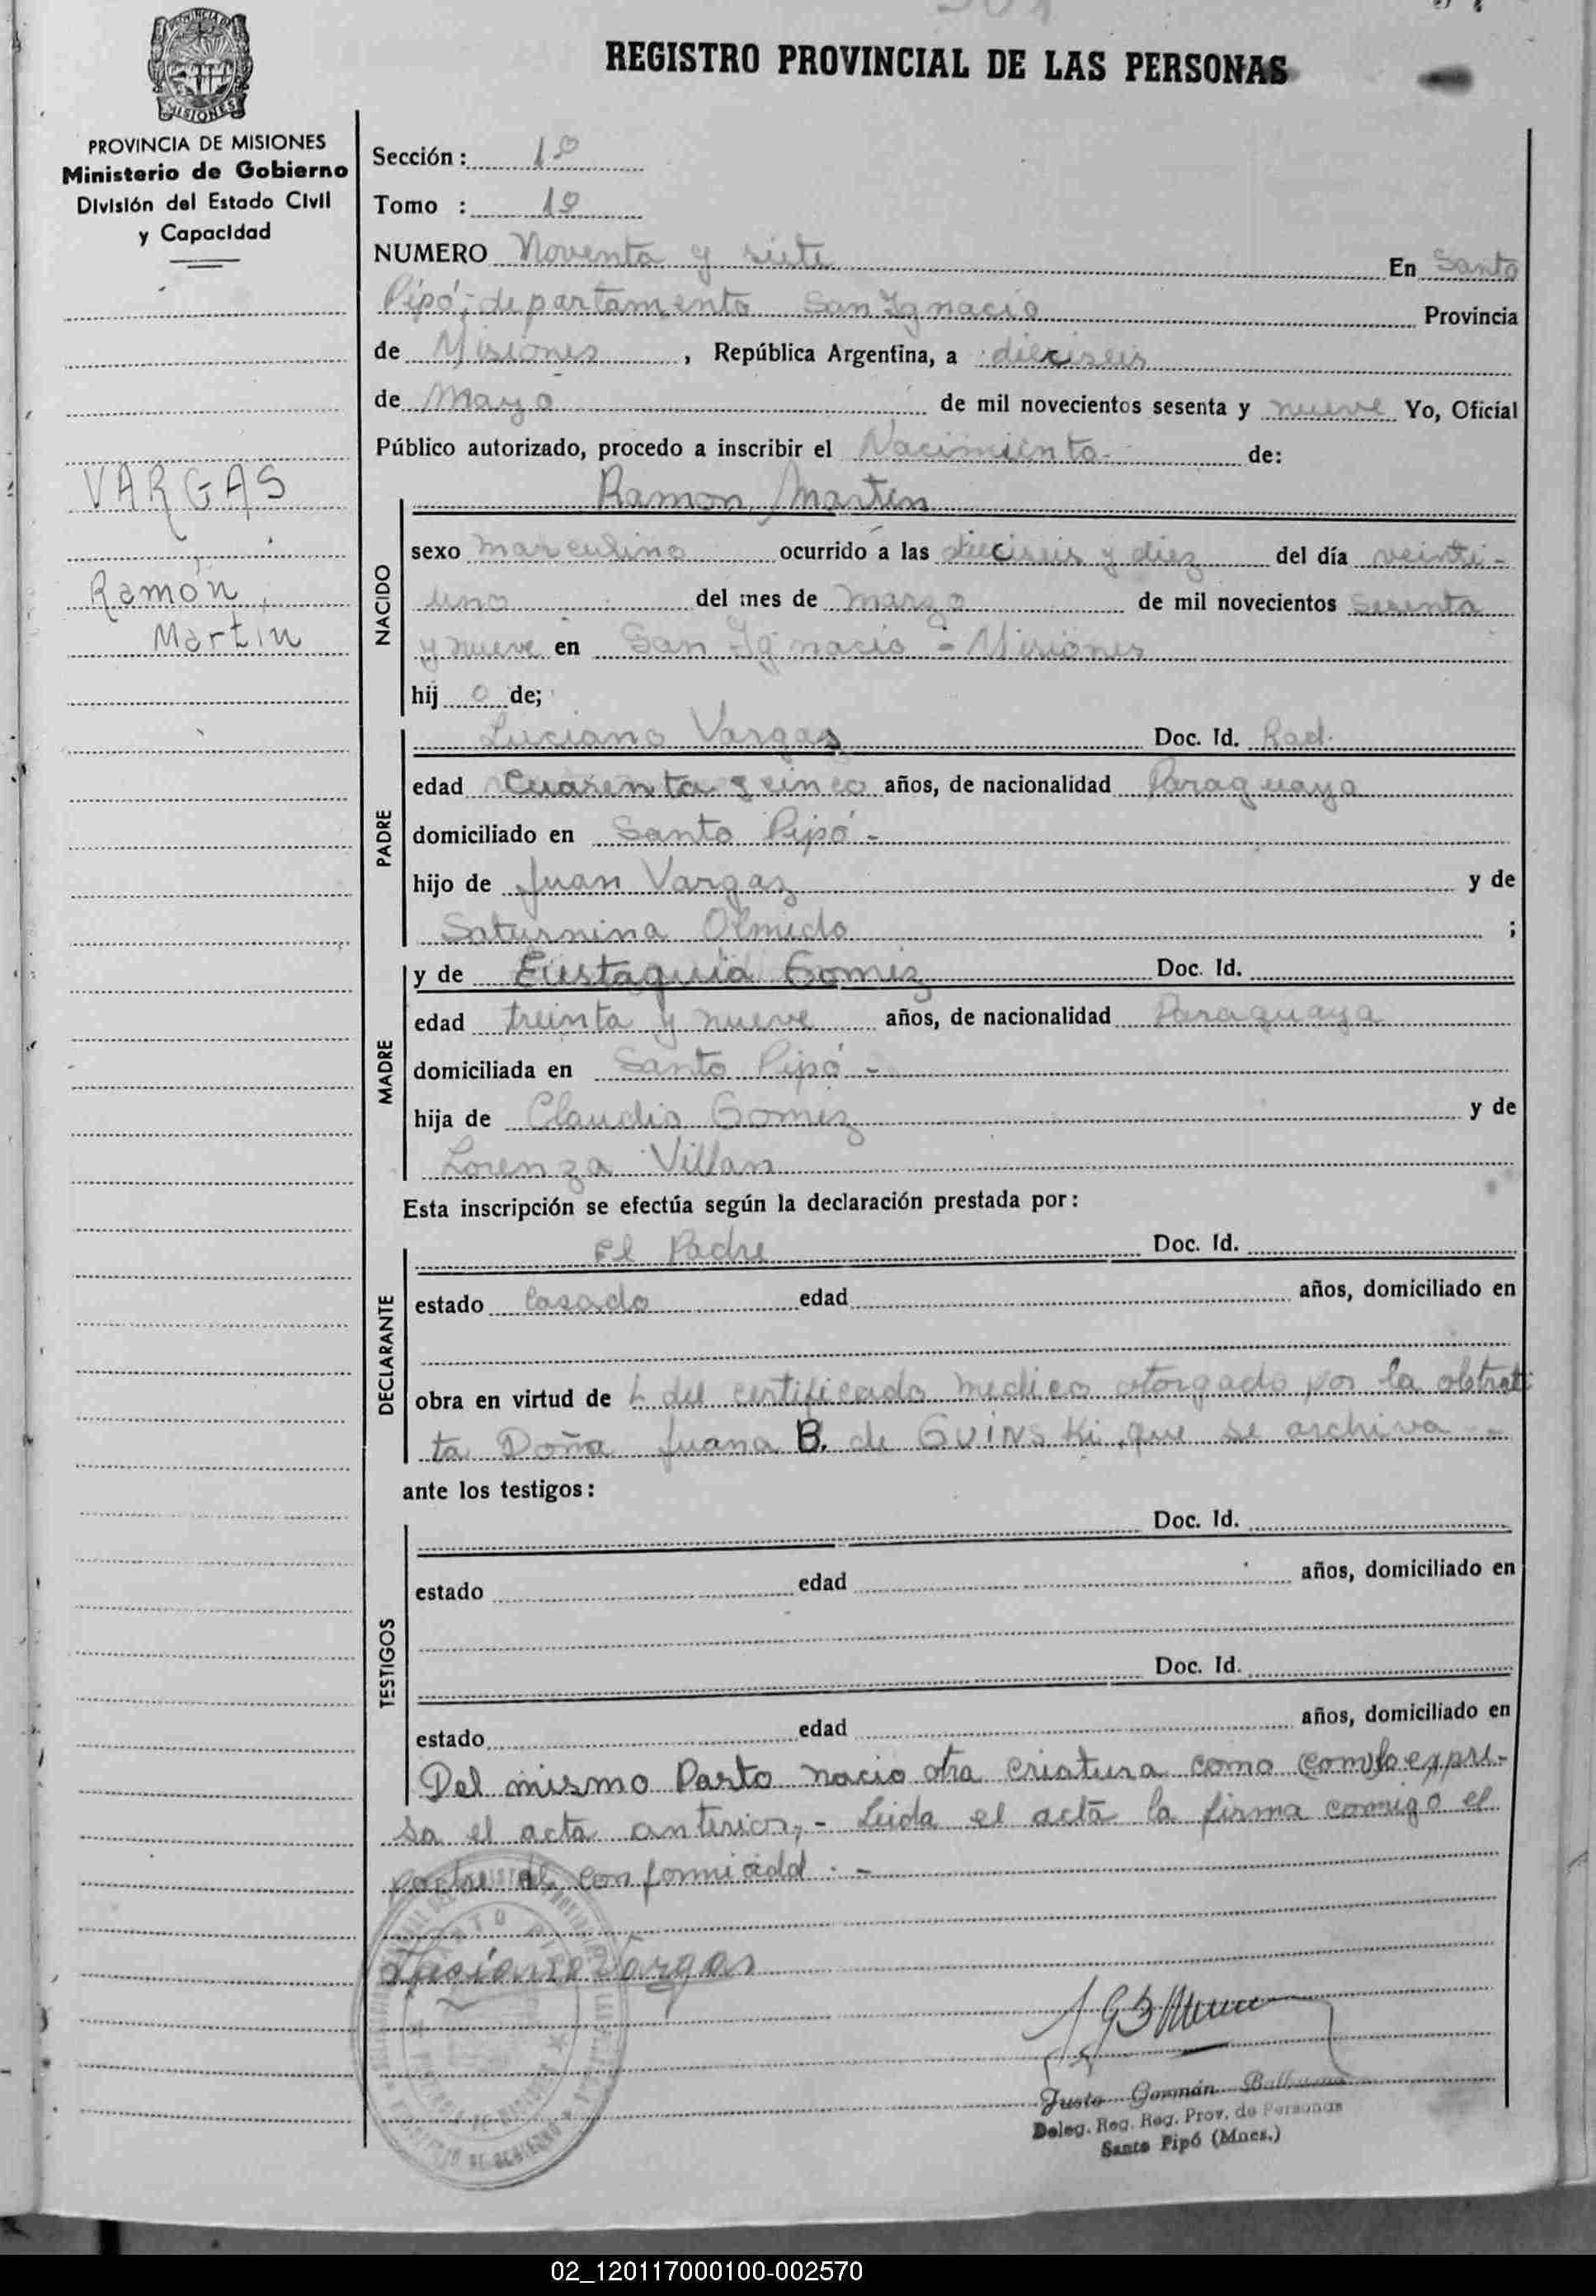 REGISTRO PROVINCIAL DE LAS PERSONAS
MISIONES
PROVINCIA DE MISIONES
Ministerio de Gobierno
División del Estado Civil
y Capacidad
VARGAS
Ramón
Martin
Sección: 1º
Tomo : 1º
NUMERO Noventa y siete En Santo
Pipó; departamento San Ignacio Provincia
de Misiones, República Argentina, a dieciseis
de Mayo de mil novecientos sesenta y nueve Yo, Oficial
Público autorizado, procedo a inscribir el Nacimiento- de:
Ramon Martin
NACIDO
sexo masculino ocurrido a las dieciseis y diez del día veinti-
uno del mes de marzo de mil novecientos sesenta
y nueve en San Ignacio - Misiones
hijo de;
PADRE
Luciano Vargas Doc. Id. Rad.
edad Cuarenta y cinco años, de nacionalidad Paraguaya
domiciliado en Santo Pipó -
hijo de Juan Vargas y de
Saturnina Olmedo ;
MADRE
y de Eustaquia Gomez Doc. Id.
edad treinta y nueve años, de nacionalidad Paraguaya
domiciliada en Santo Pipó -
hija de Claudio Gomez y de
Lorenza Villan
Esta inscripción se efectúa según la declaración prestada por:
DECLARANTE
El Padre Doc. Id.
estado Casado edad años, domiciliado en
obra en virtud de del certificado medico otorgado por la obtreti
ta Doña Juana B. de GUINSKi, que se archiva -
ante los testigos:
TESTIGOS
Doc. Id.
estado edad años, domiciliado en
Doc. Id.
estado edad años, domiciliado en
Del mismo Parto nacio otra criatura como expre-
sa el acta anterior,- Leida el acta la firma comigo el
padre de conformidad.-
Vargas
Justo Germán
Deleg. Reg. Reg. Prov. de Personas
Santo Pipó (Mnes.)
02_120117000100-002570